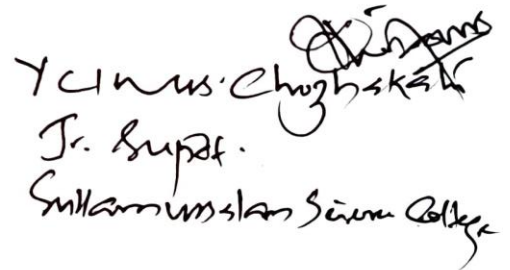 Yunus. Chozhekali
Jr. Supdt.
Sullamussalam Science College